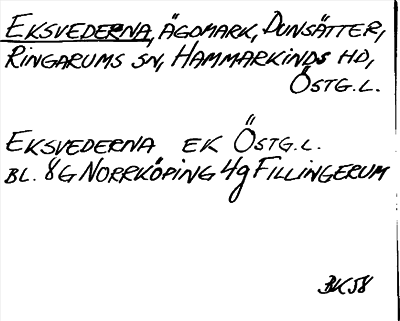 EKSVEDERNA, ÄGOMARK, DUNSÄTTER,
RINGARUMS SN, HAMMARKINDS HD,
ÖSTG.L.
EKSVEDERNA EK ÖSTG.L.
BL. 8G NORRKÖPING 4g FILLINGERUM
BK58